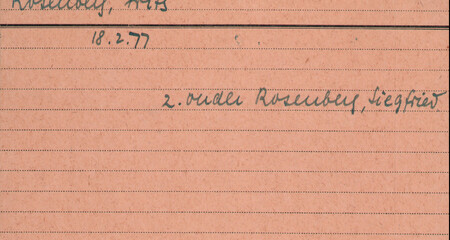 Rosenberg,
18.2.77
2. onder Rosenberg, Siegfried